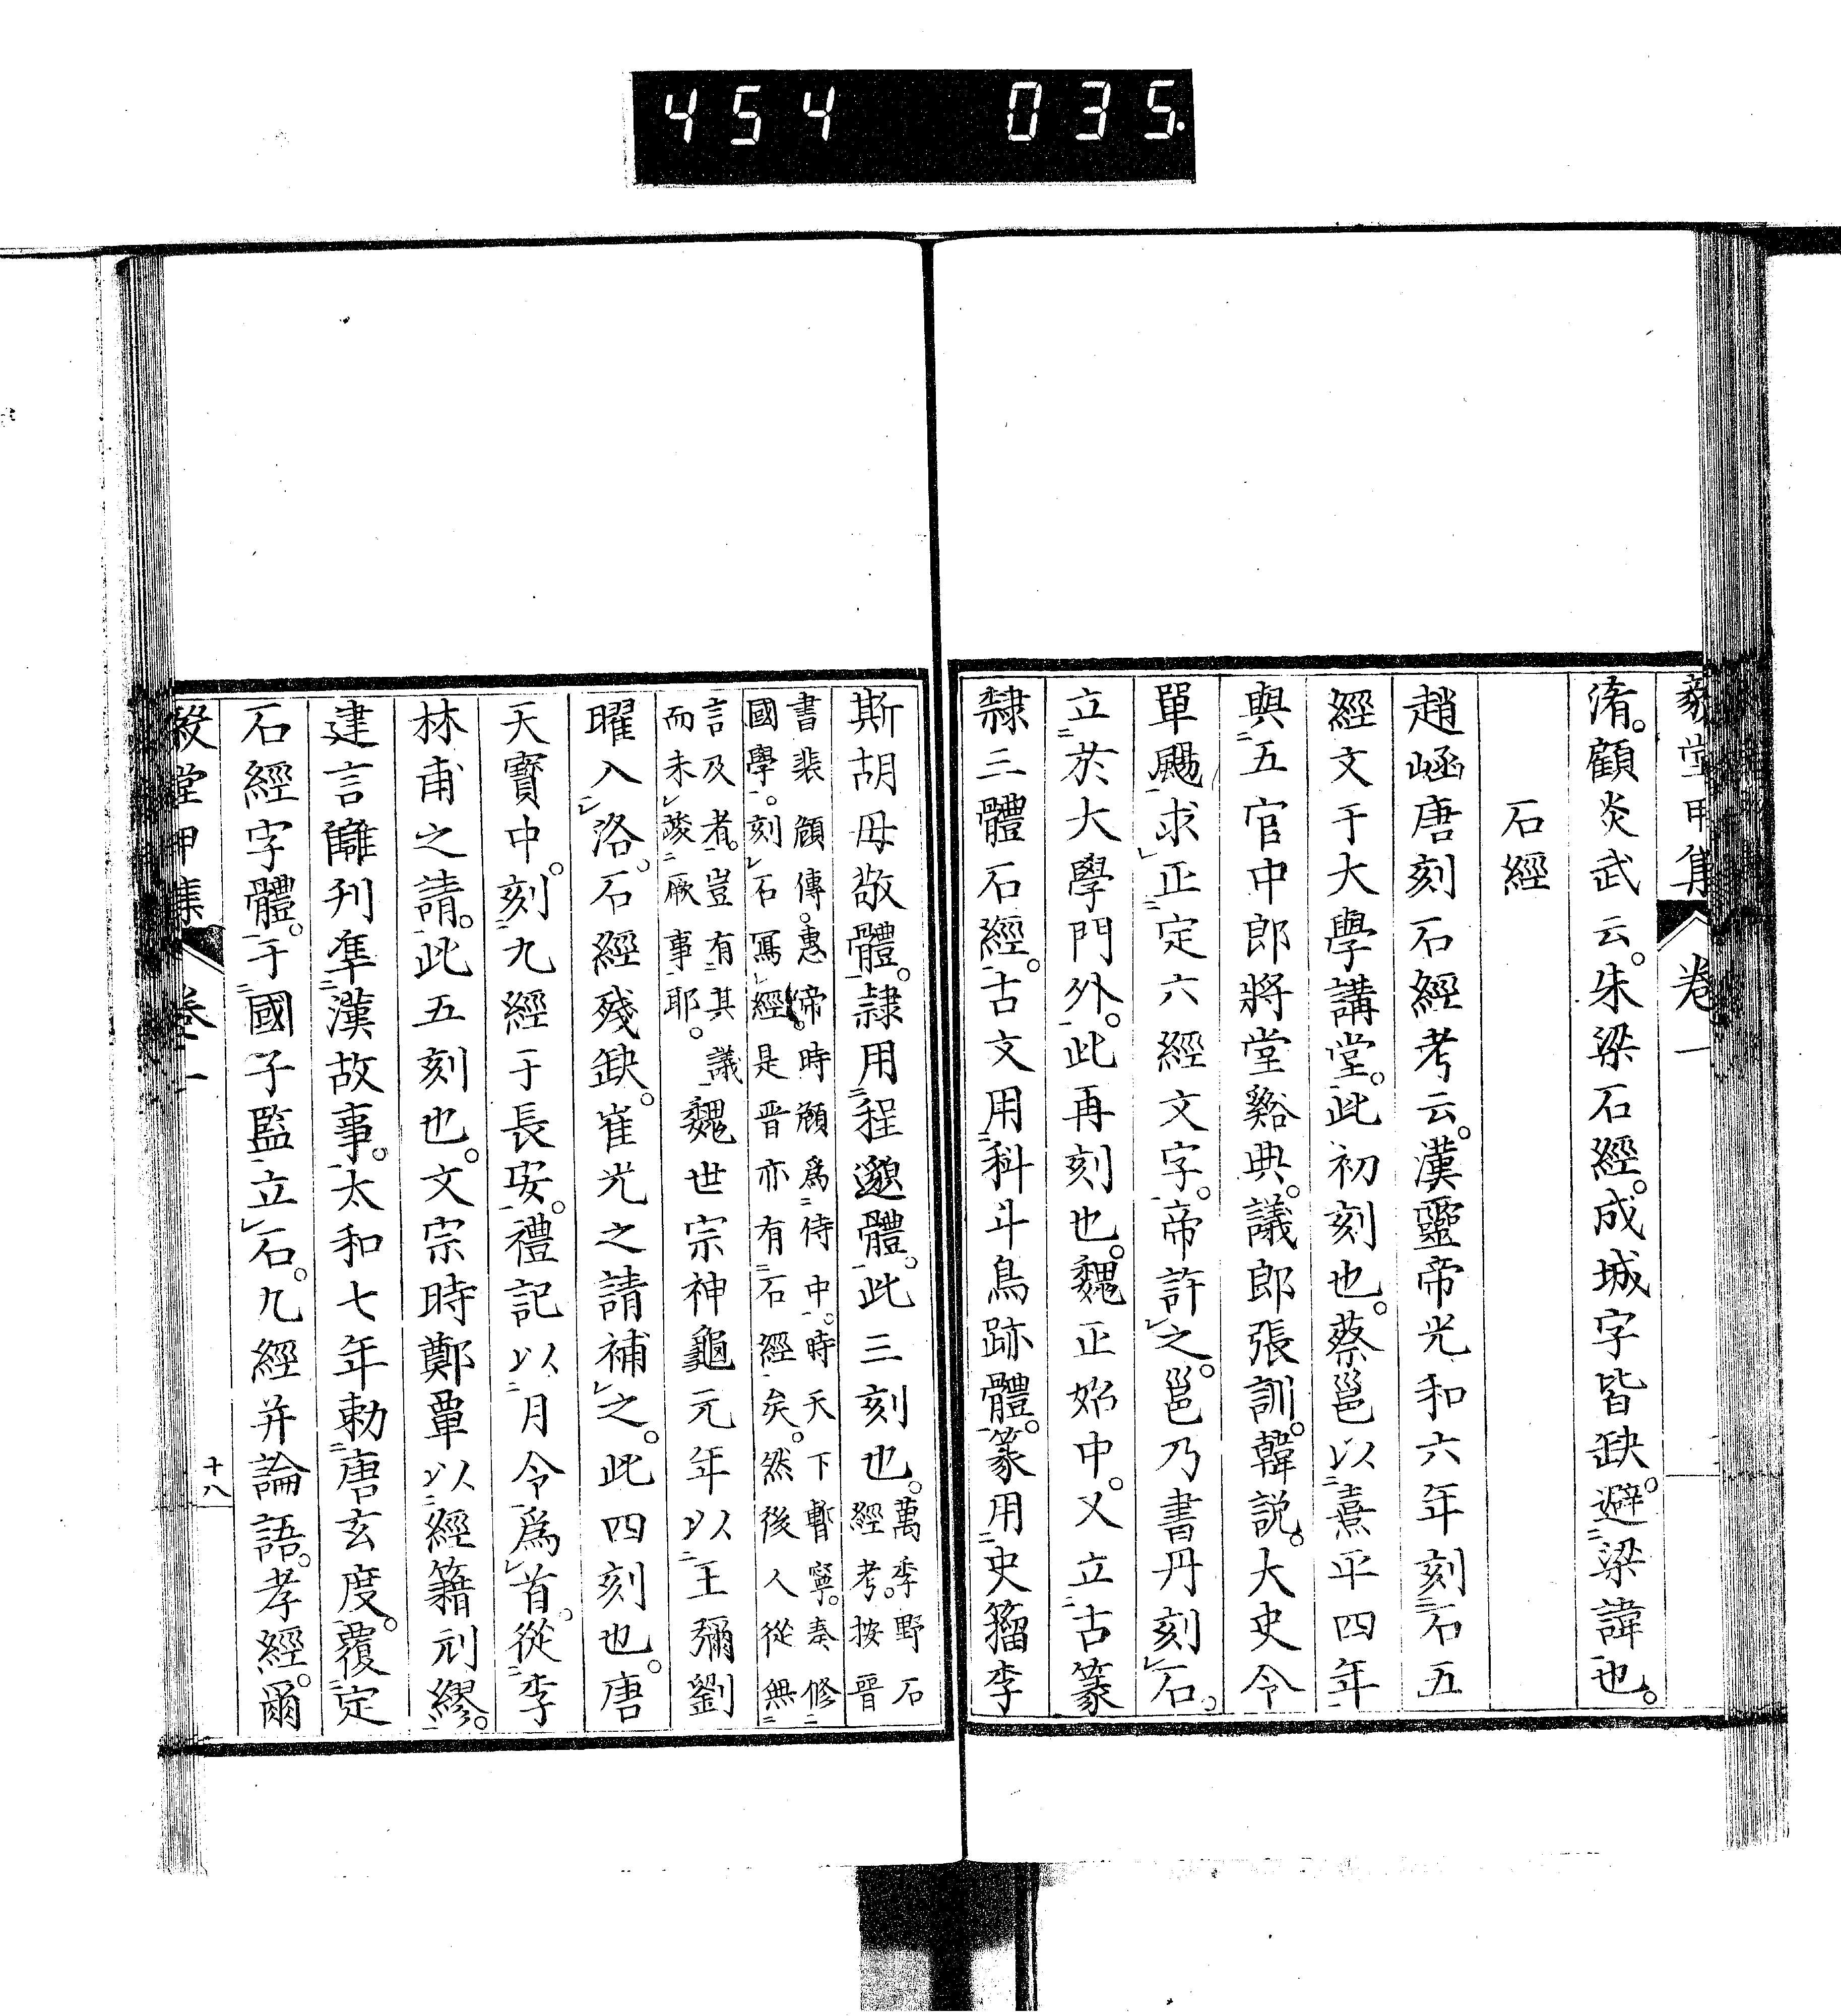 454 035.
㲄堂甲集 卷一
淆。顧炎武云。朱梁石經。成城字皆缺。避梁諱也。
石經
趙崡唐刻石經考云。漢靈帝光和六年刻石五
經文于大學講堂。此初刻也。蔡邕以熹平四年
與五官中郎將堂谿典。議郎張訓。韓説。大史令
單颺求正定六經文字。帝許之。邕乃書丹刻石。
立於大學門外。此再刻也。魏正始中。又立古篆
隸三體石經。古文用科斗鳥跡體。篆用史籀李
斯胡毋敬體。隷用程邈體。此三刻也。萬季野石
經考。按晉
書裴頠傳。惠帝。時頠爲侍中。時天下暫寧。奏修
國學。刻石寫經。是晉亦有石經矣。然後人從無
言及者。豈有其議
而未蕆厥事耶。魏世宗神龜元年以王彌劉
曜入洛。石經殘缺。崔光之請補之。此四刻也。唐
天寶中。刻九經于長安。禮記以月令爲首。從李
林甫之請。此五刻也。文宗時鄭覃以經籍刓繆。
建言讎刊準漢故事。太和七年勅唐玄度。覆定
石經字體。于國子監立石。九經并論語。孝經。爾
㲄堂甲集 卷一 十八